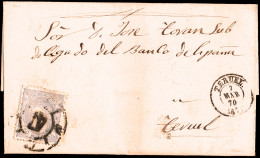 Sor D. Jose Toran Sub
delegado del Banco de España
en
Teruel
TERUEL
2
MAR
70